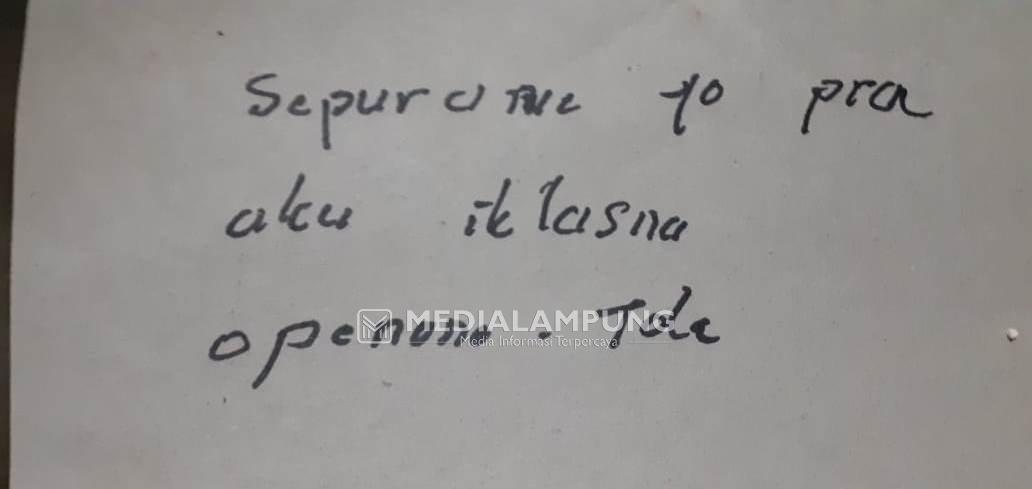 Sepurane yo pra
aku iklasna
openono. Tole
MEDIALAMPUNG
Media Informasi Terpercaya